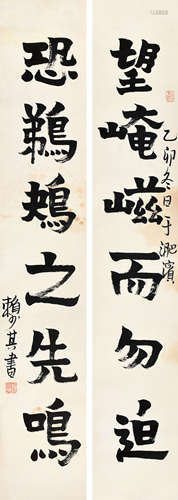 望崦嵫而勿迫
乙卯冬日于淝濱
恐鵜鴂之先鳴
賴少其書